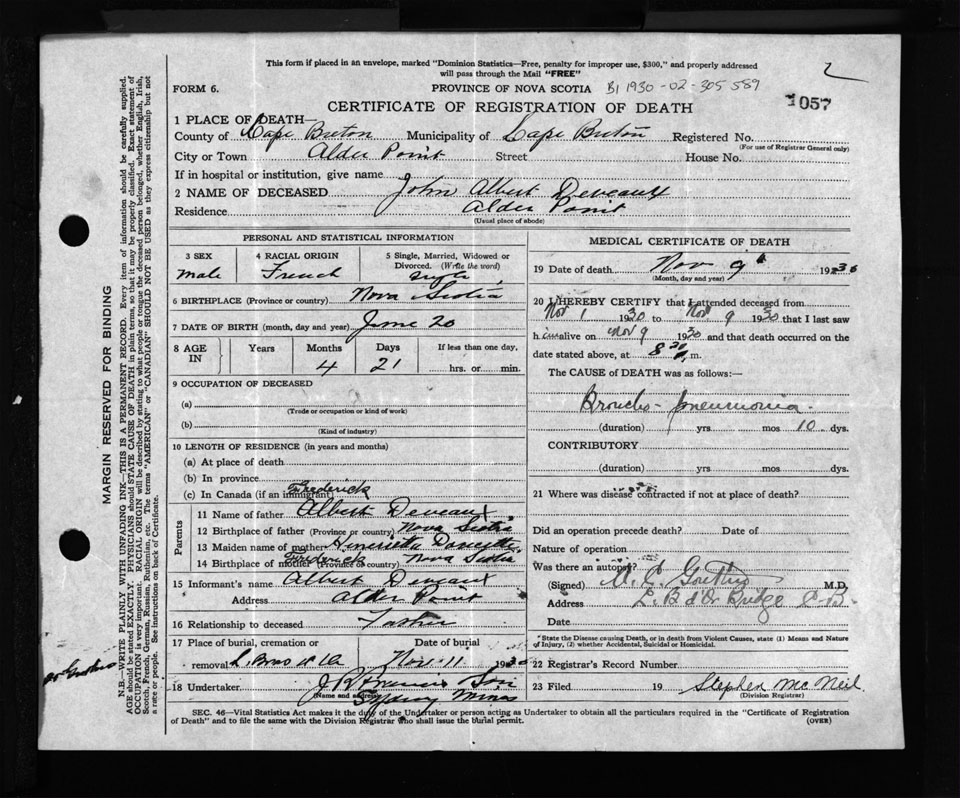 This form if placed in an envelope, marked "Dominion Statistics—Free, penalty for improper use, $300," and properly addressed
will pass through the Mail "FREE"
2
FORM 6.
PROVINCE OF NOVA SCOTIA B1 1930-02-305 589
1057
CERTIFICATE OF REGISTRATION OF DEATH
1 PLACE OF DEATH—
County of Cape Breton Municipality of Cape Breton Registered No.
(For use of Registrar General only)
City or Town Alder Point Street House No.
If in hospital or institution, give name
2 NAME OF DECEASED John Albert Deveaux
Residence Alder Point
(Usual place of abode)
PERSONAL AND STATISTICAL INFORMATION
3 SEX 4 RACIAL ORIGIN 5 Single, Married, Widowed or
Divorced. (Write the word)
male French single
6 BIRTHPLACE (Province or country) Nova Scotia
7 DATE OF BIRTH (month, day and year) June 20
8 AGE IN Years Months Days If less than one day.
4 21 hrs. or min.
9 OCCUPATION OF DECEASED
(a)
(Trade or occupation or kind of work)
(b)
(Kind of industry)
10 LENGTH OF RESIDENCE (in years and months)
(a) At place of death
(b) In province
(c) In Canada (if an immigrant)
Frederick
Parents
11 Name of father Albert Deveaux
12 Birthplace of father (Province or country) Nova Scotia
13 Maiden name of mother Henrietta
14 Birthplace of mother (Province or country) Nova Scotia
Frederick
15 Informant's name Albert Deveaux
Address Alder Point
16 Relationship to deceased Father
17 Place of burial, cremation or Date of burial
removal L. Bras d'Or Nov. 11 1930
18 Undertaker J R Francis Son
(Name and address) Sydney Mines
MEDICAL CERTIFICATE OF DEATH
19 Date of death Nov 9th 1930
(Month, day and year)
20 I HEREBY CERTIFY that I attended deceased from
Nov 1 1930 to Nov 9 1930 that I last saw
him alive on Nov 9 1930 and that death occurred on the
date stated above, at 8 30 m.
The CAUSE of DEATH was as follows:—
Broncho-pneumonia.
(duration) yrs mos 10 dys.
CONTRIBUTORY
(duration) yrs. mos. dys.
21 Where was disease contracted if not at place of death?
Did an operation precede death? Date of
Nature of operation
Was there an autopsy?
(Signed) M.D.
Address L. B d'Or Bridge C-B.
Date
*State the Disease causing Death, or in death from Violent Causes, state (1) Means and Nature
of Injury, (2) whether Accidental, Suicidal or Homicidal.
22 Registrar's Record Number
23 Filed 19 Stephen McNeil
(Division Registrar)
SEC. 46—Vital Statistics Act makes it the duty of the Undertaker or person acting as Undertaker to obtain all the particulars required in the "Certificate of Registration
of Death" and to file the same with the Division Registrar who shall issue the burial permit.
(OVER)
MARGIN RESERVED FOR BINDING
N.B.—WRITE PLAINLY WITH UNFADING INK—THIS IS A PERMANENT RECORD. Every item of information should be carefully supplied.
AGE should be stated EXACTLY. PHYSICIANS should STATE CAUSE OF DEATH in plain terms, so that it may be properly classified. Exact statement of
OCCUPATION is very important. RACIAL ORIGIN will be described by stating to what people or tongue the deceased person belonged, whether English, Irish,
Scotch, French, German, Russian, Ruthenian, etc. The terms "AMERICAN" or "CANADIAN" SHOULD NOT BE USED as they express citizenship but not
a rate or people. See instructions on back of Certificate.